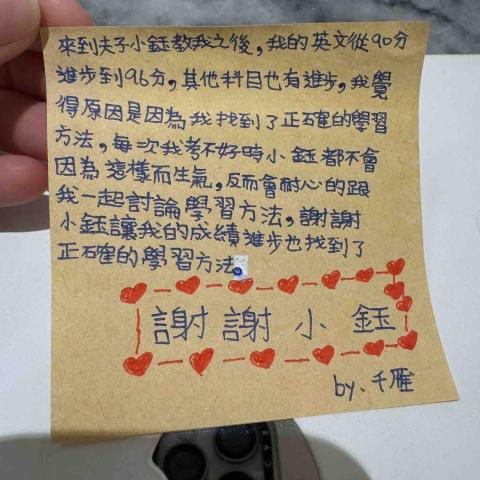 來到夫子小鈺教我之後,我的英文從90分
進步到96分,其他科目也有進步,我覺
得原因是因為我找到了正確的學習
方法,每次我考不好時小鈺都不會
因為這樣而生氣,反而會耐心的跟
我一起討論學習方法,謝謝
小鈺讓我的成績進步也找到了
正確的學習方法。
謝謝小鈺
by.千雁